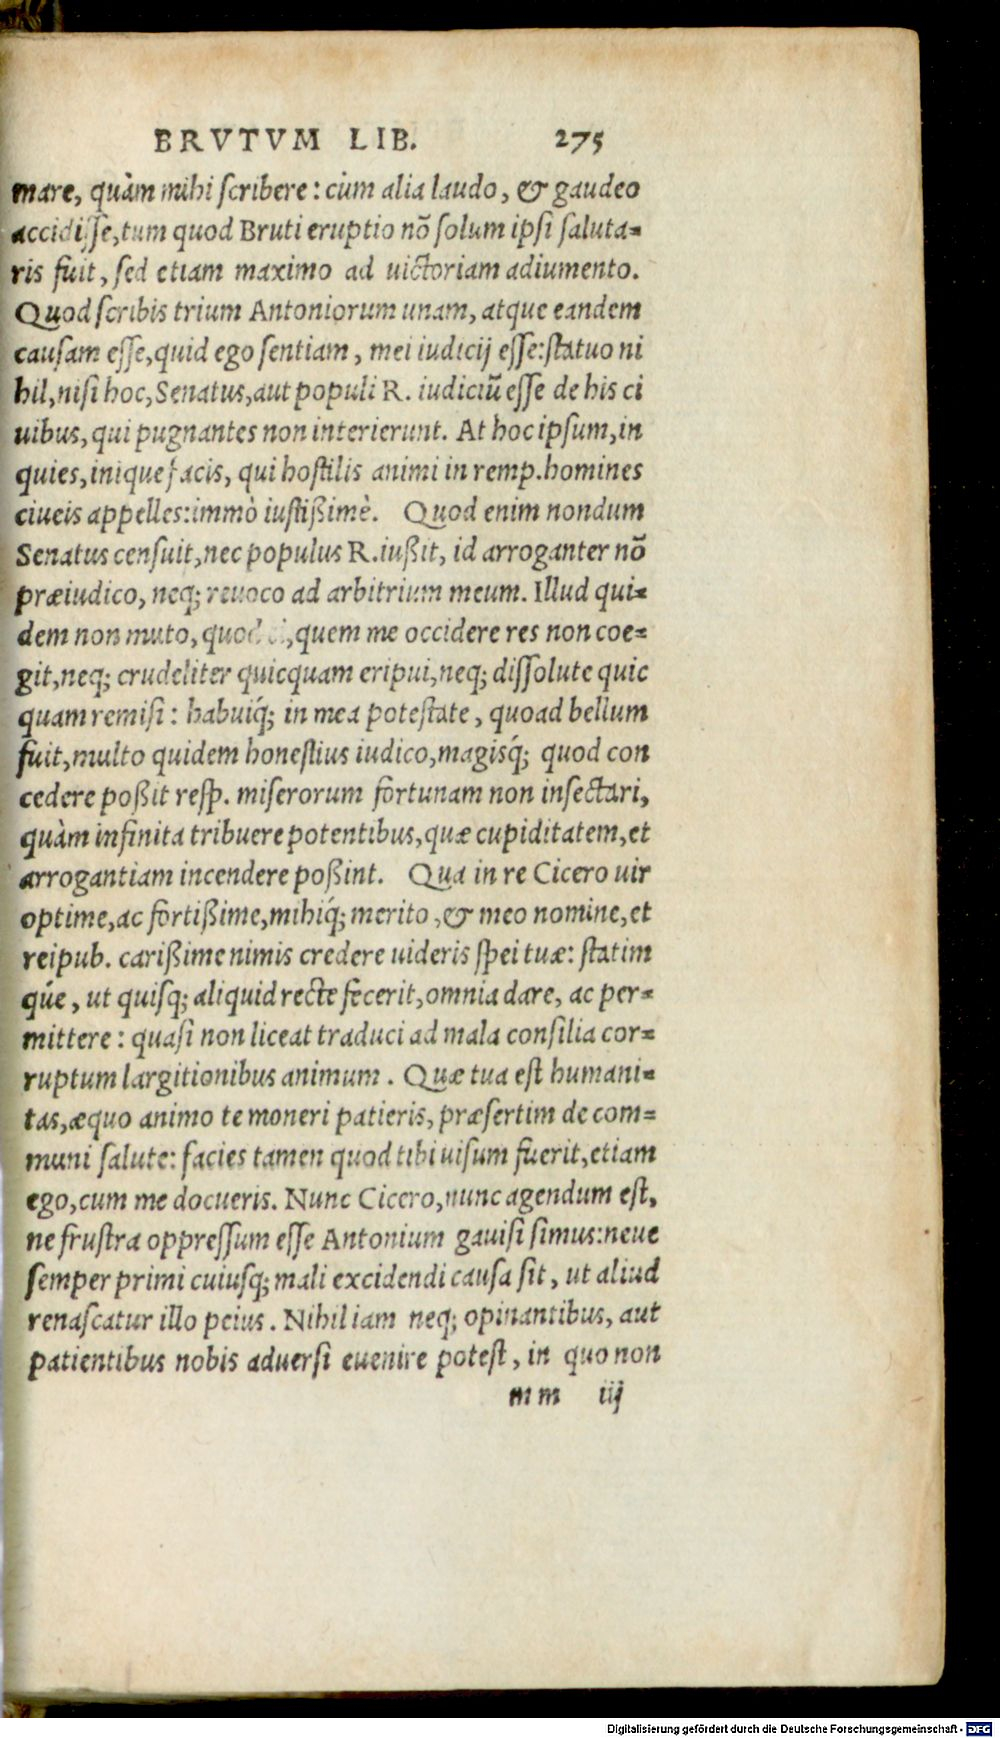 BRVTVM LIB. 275
mare, quàm mihi scribere: cùm alia laudo, & gaudeo
accidisse, tum quod Bruti eruptio nõ solum ipsi saluta-
ris fuit, sed etiam maximo ad uictoriam adiumento.
Quod scribis trium Antoniorum unam, atque eandem
causam esse, quid ego sentiam, mei iudicij esse: statuo ni
hil, nisi hoc, Senatus, aut populi R. iudiciũ esse de his ci
uibus, qui pugnantes non interierunt. At hoc ipsum, in
quies, inique facis, qui hostilis animi in remp. homines
ciueis appelles: immò iustißimè. Quod enim nondum
Senatus censuit, nec populus R. iußit, id arroganter nõ
præiudico, neq; reuoco ad arbitrium meum. Illud qui-
dem non muto, quod ei, quem me occidere res non coe-
git, neq; crudeliter quicquam eripui, neq; dissolute quic
quam remisi: habuiq́; in mea potestate, quoad bellum
fuit, multo quidem honestius iudico, magisq́; quod con
cedere poßit resp. miserorum fortunam non insectari,
quàm infinita tribuere potentibus, quæ cupiditatem, et
arrogantiam incendere poßint. Qua in re Cicero uir
optime, ac fortißime, mihiq́; merito, & meo nomine, et
reipub. carißime nimis credere uideris spei tuæ: statim
qúe, ut quisq; aliquid recte fecerit, omnia dare, ac per-
mittere: quasi non liceat traduci ad mala consilia cor-
ruptum largitionibus animum. Quæ tua est humani-
tas, æquo animo te moneri patieris, præsertim de com-
muni salute: facies tamen quod tibi uisum fuerit, etiam
ego, cum me docueris. Nunc Cicero, nunc agendum est,
ne frustra oppressum esse Antonium gauisi simus: neue
semper primi cuiusq; mali excidendi causa sit, ut aliud
renascatur illo peius. Nihil iam neq; opinantibus, aut
patientibus nobis aduersi euenire potest, in quo non
mm iij
Digitalisierung gefördert durch die Deutsche Forschungsgemeinschaft - DFG